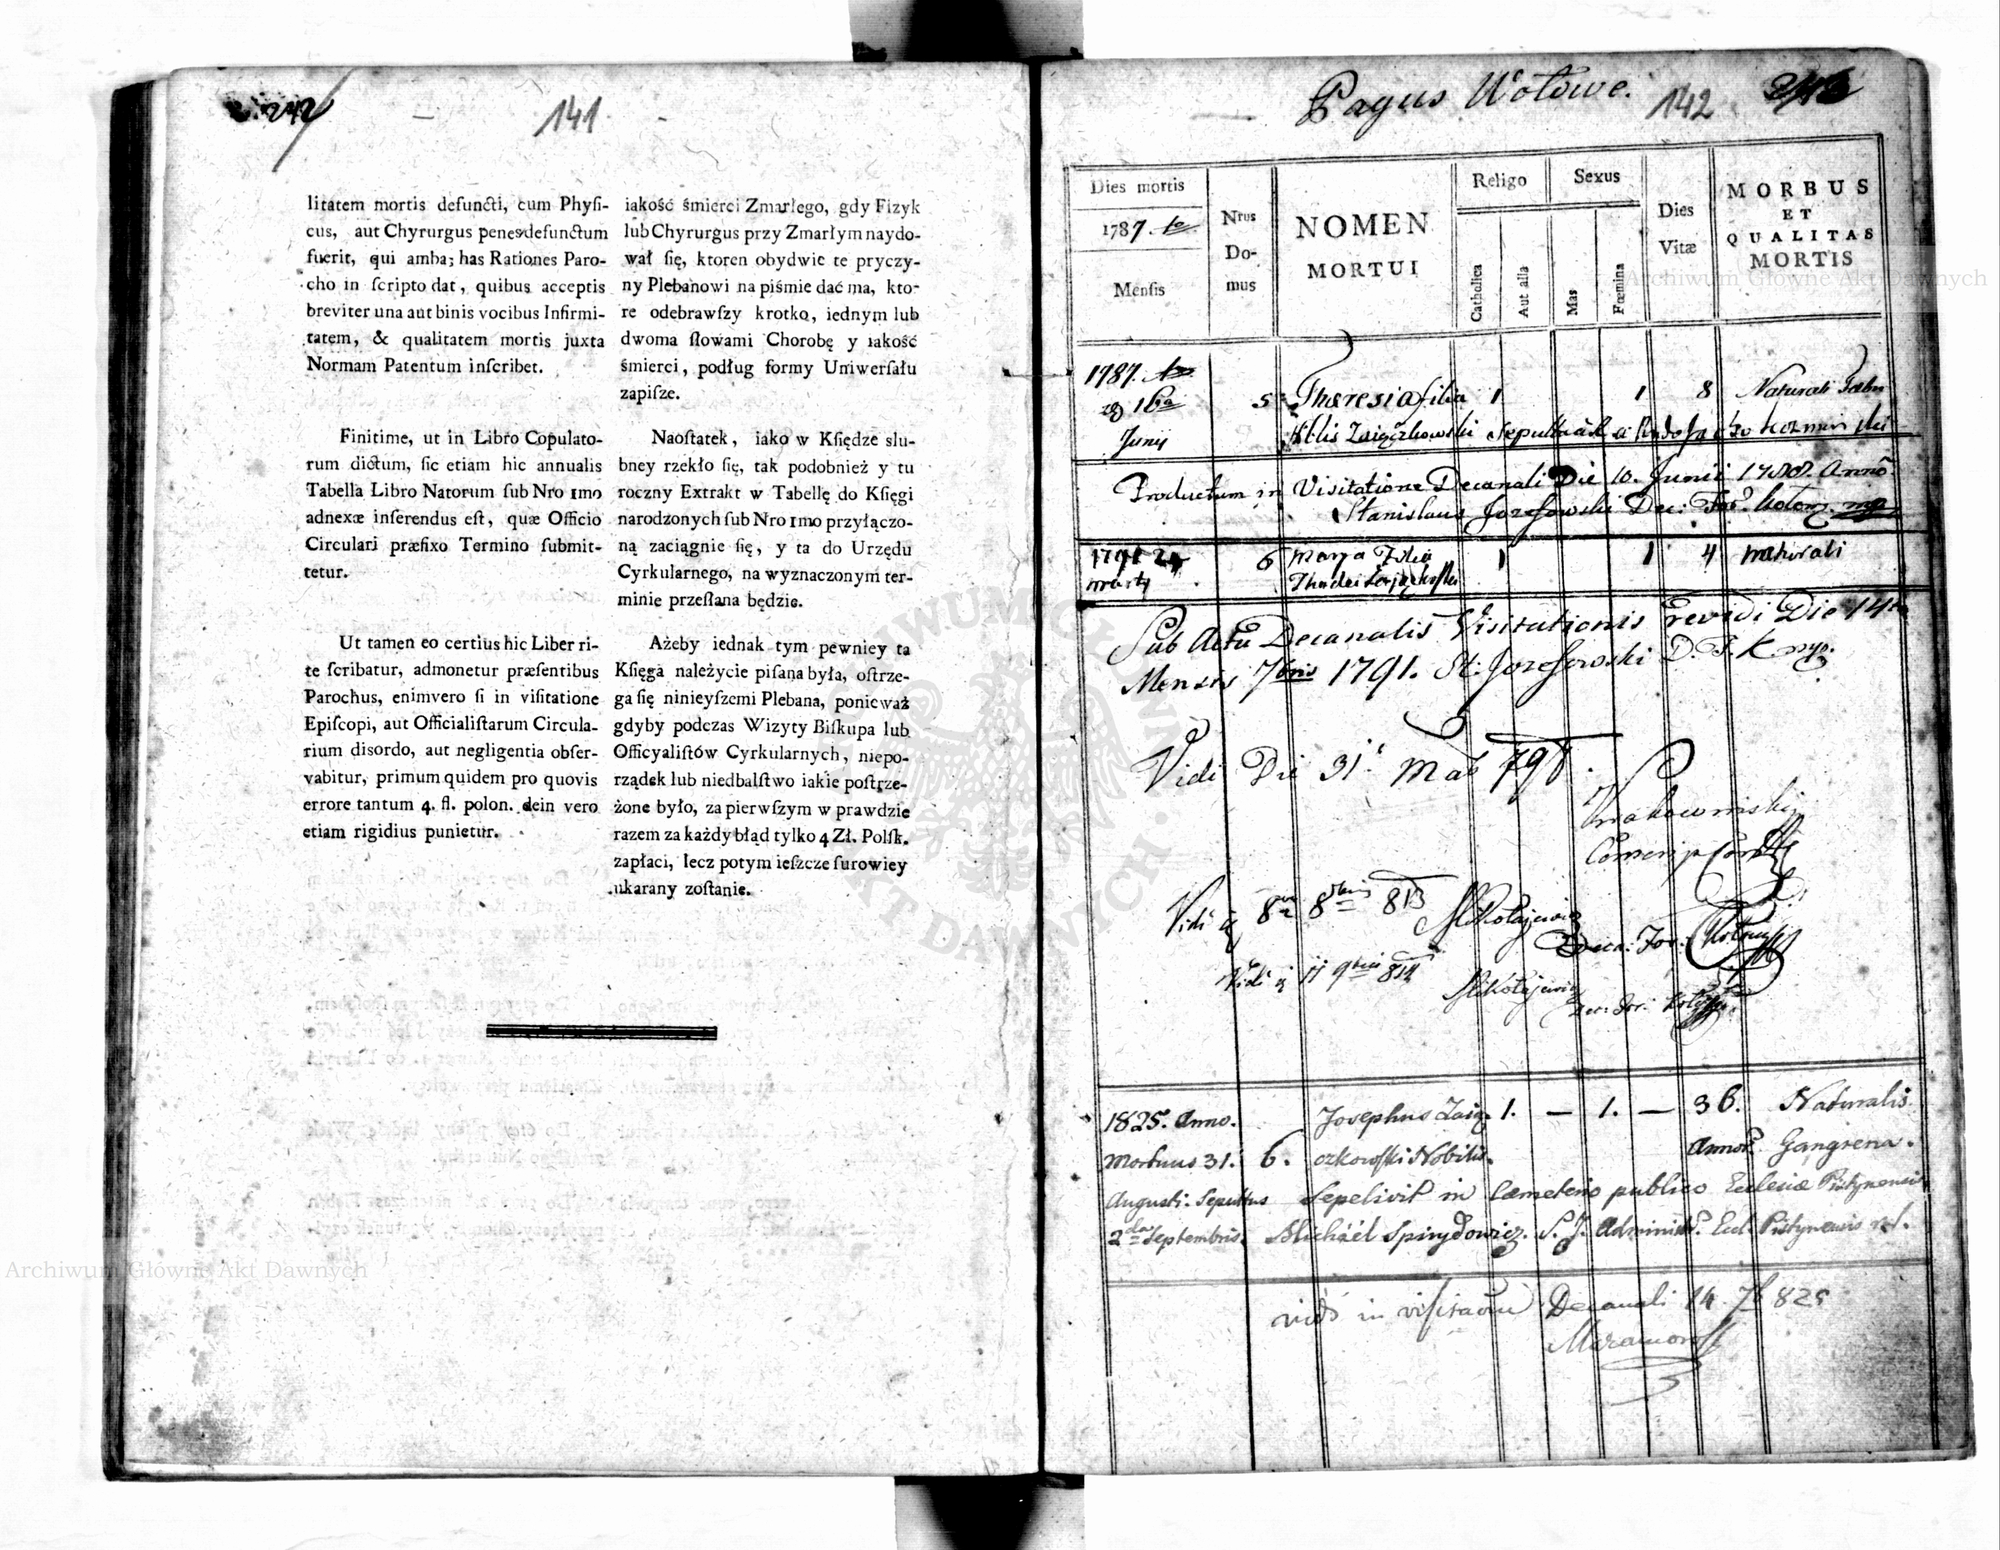 242
141
litatem mortis defuncti, cum Phyſi-
cus, aut Chyrurgus penes defunctum
fuerit, qui ambas has Rationes Paro-
cho in ſcripto dat, quibus acceptis
breviter una aut binis vocibus Infirmi-
tatem, & qualitatem mortis juxta
Normam Patentum inſcribet.
Finitime, ut in Libro Copulato-
rum dictum, ſic etiam hic annualis
Tabella Libro Natorum ſub Nro 1mo
adnexæ inferendus eſt, quæ Officio
Circulari præfixo Termino ſubmit-
tetur.
Ut tamen eo certius hic Liber ri-
te ſcribatur, admonetur præſentibus
Parochus, enimvero ſi in viſitatione
Epiſcopi, aut Officialiſtarum Circula-
rium disordo, aut negligentia obſer-
vabitur, primum quidem pro quovis
errore tantum 4. fl. polon. dein vero
etiam rigidius punietur.
iakość śmierci Zmarłego, gdy Fizyk
lub Chyrurgus przy Zmarłym naydo-
wał ſię, ktoren obydwie te pryczy-
ny Plebanowi na piśmie dać ma, kto-
re odebrawſzy krotko, iednym lub
dwoma ſłowami Chorobę y iakość
śmierci, podług formy Uniwerſału
zapiſze.
Naoſtatek, iako w Kſiędze slu-
bney rzekło ſię, tak podobnież y tu
roczny Extrakt w Tabellę do Kſięgi
narodzonych ſub Nro 1mo przyłączo-
ną zaciągnie ſię, y ta do Urzędu
Cyrkularnego, na wyznaczonym ter-
minie przeſłana będzie.
Ażeby iednak tym pewniey ta
Kſięga należycie piſana była, oſtrze-
ga ſię ninieyſzemi Plebana, ponieważ
gdyby podczas Wizyty Biſkupa lub
Officyaliſtów Cyrkularnych, niepo-
rządek lub niedbalſtwo iakie poſtrze-
żone było, za pierwſzym w prawdzie
razem za każdy błąd tylko 4 Zł. Polſk.
zapłaci, lecz potym ieſzcze ſurowiey
ukarany zoſtanie.
Pagus Wołowe. 142
Dies mortis
1787.
Menſis
Nrus Do- mus
NOMEN
MORTUI
Religo
Catholica
Aut alia
Sexus
Mas
Fœmina
Dies
Vitæ
MORBUS
ET
QUALITAS
MORTIS
1787.
16ta 5 Theresia filia 1 1 8 Naturali
Junij
Productum in Visitatione Decanali Die 10. Junii 1788. Anno
Stanislaus Jozefowski Dec:
1791 24 6 Marya Filia 1 1 4 naturali
Sub Actu Decanalis Visitationis Revidi Die 14ta
Mensis 7bris 1791. St: Jozefowski D. F. K mp.
Vidi Die 31
Vidi 8va 8bris 813 Mikołajewicz
Vidi 11 9bris 814 Mikołajewicz
1825. Anno. Josephus Zaią- 1. — 1. — 36. Naturalis
Mortuus 31. 6. czkowski Nobilis. Annor. Gangrena.
Augusti. Sepultus Sepelivit in Cæmeterio publico Eclesiæ Pistynensis
2da Septembris. Michaël Spirydowicz. S. J. Administr. Eccl. Pistynensis
vidi in visitaõne Decanali 14 7b 825
Archiwum Główne Akt Dawnych
Archiwum Główne Akt Dawnych
ARCHIWUM GŁÓWNE AKT DAWNYCH